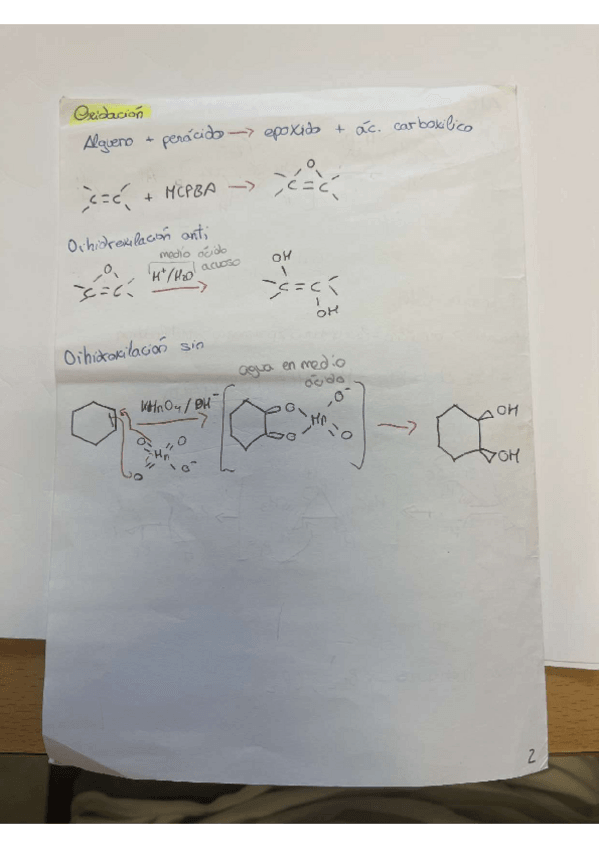 Oxidación
Alqueno + perácido → epoxido + ác. carboxílico
C=C + MCPBA → O C=C
Dihidroxilación anti
medio ácido
acuoso
O C=C H⁺/H₂O → OH C=C OH
Dihidroxilación sin
agua en medio
ácido
KMnO₄/OH⁻
O O Mn O O⁻
O O Mn O⁻ O
OH
OH
2